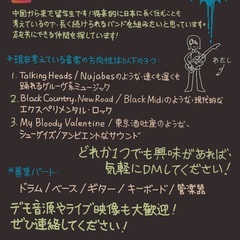 中国から来た留学生です！将来的に日本に長く住むことも
考えているので、長く続けられるバンドを組みたいと思っています！
お気楽にできる仲間を探しています！
*現在考えている音楽の方向性は以下の3つ:
1. Talking Heads / Nujabesのような、速くも遅くも
踊れるグルーヴ系ミュージック
2. Black Country, New Road / Black Midiのような、現代的な
エクスペリメンタル・ロック
3. My Bloody Valentine / 東京酒吐座のような、
シューゲイズ/アンビエントなサウンド
わたし
どれか1つでも興味があれば、
気軽にDMしてください！
*募集パート:
ドラム/ベース/ギター/キーボード/管楽器
デモ音源やライブ映像も大歓迎！
ぜひ連絡してください！